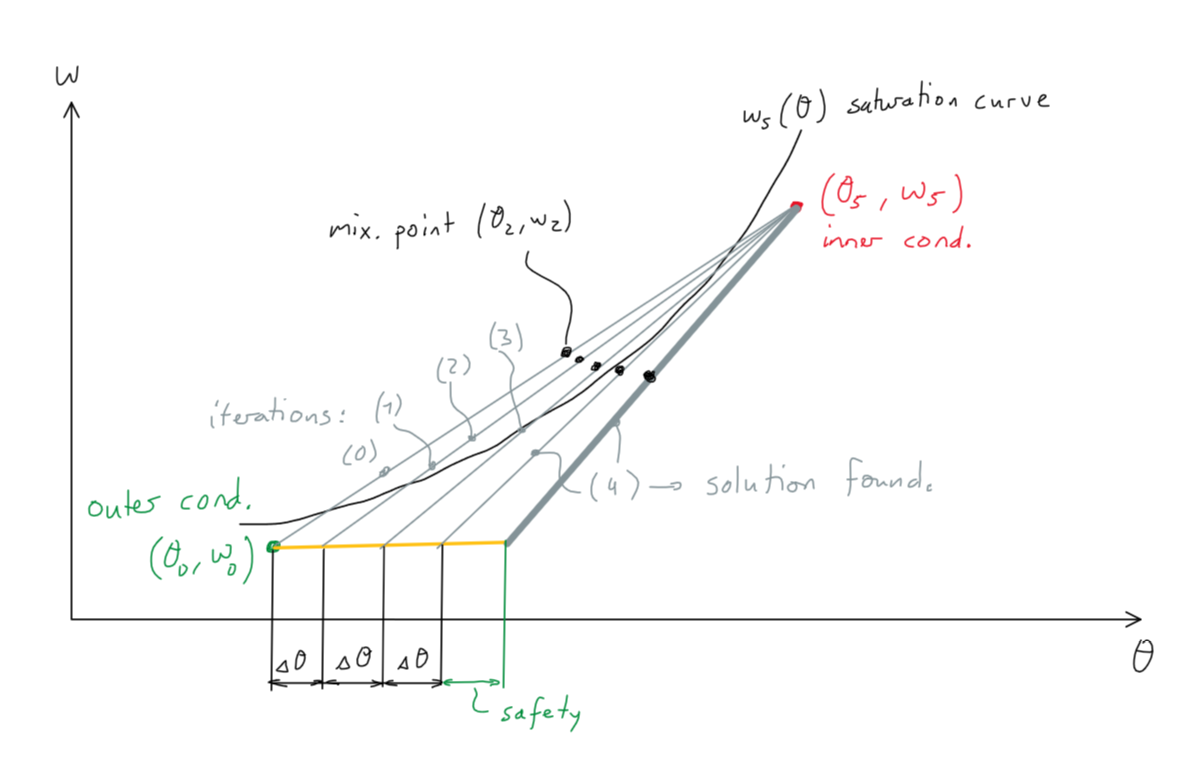 w
w₅(θ) saturation curve
(θ₅, w₅)
inner cond.
mix. point (θ₂, w₂)
iterations:
(0)
(1)
(2)
(3)
(4) → solution found.
outer cond.
(θ₀, w₀)
Δθ
Δθ
Δθ
safety
θ